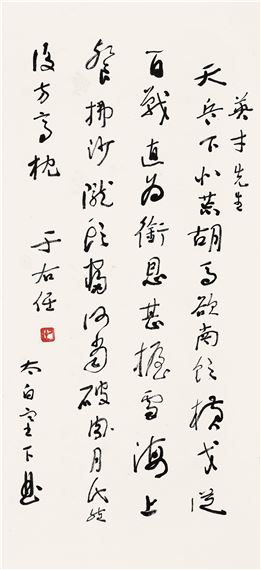 英才先生
天兵下北荒胡馬欲南飲橫戈從
百戰直為銜恩甚握雪海上
餐拂沙隴頭寢何當破月氏然
後方高枕
于右任
太白塞下曲